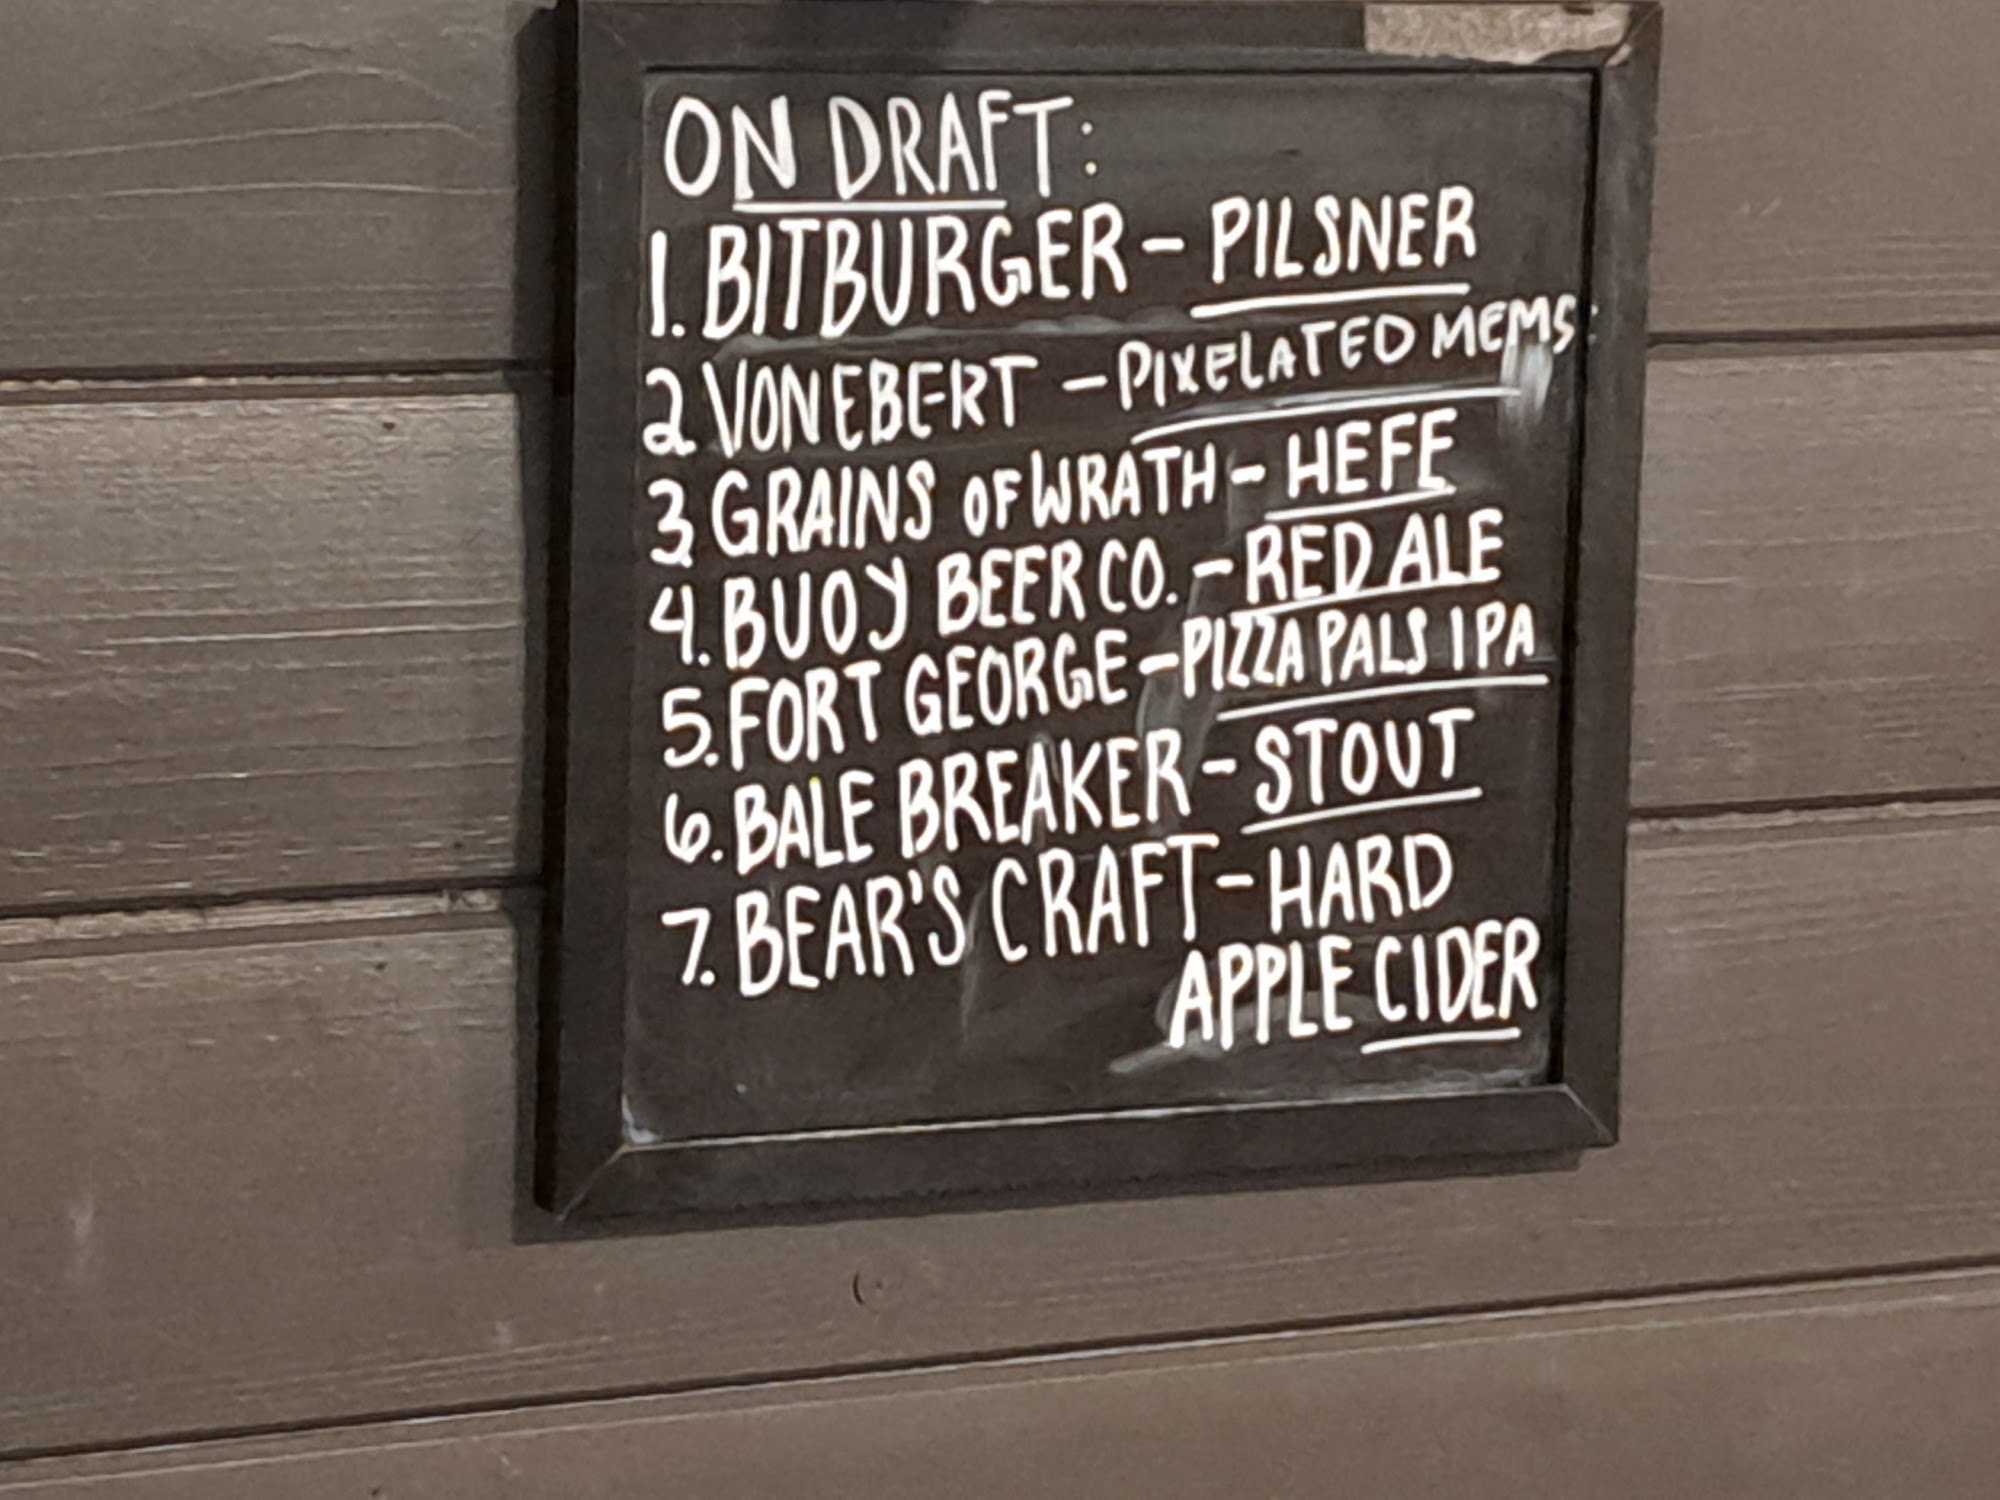 ON DRAFT:
1. BITBURGER - PILSNER
2 VON EBERT - PIXELATED MEMS
3. GRAINS OF WRATH - HEFE
4. BUOY BEER CO. - RED ALE
5. FORT GEORGE - PIZZA PALS IPA
6. BALE BREAKER - STOUT
7. BEAR'S CRAFT - HARD
APPLE CIDER